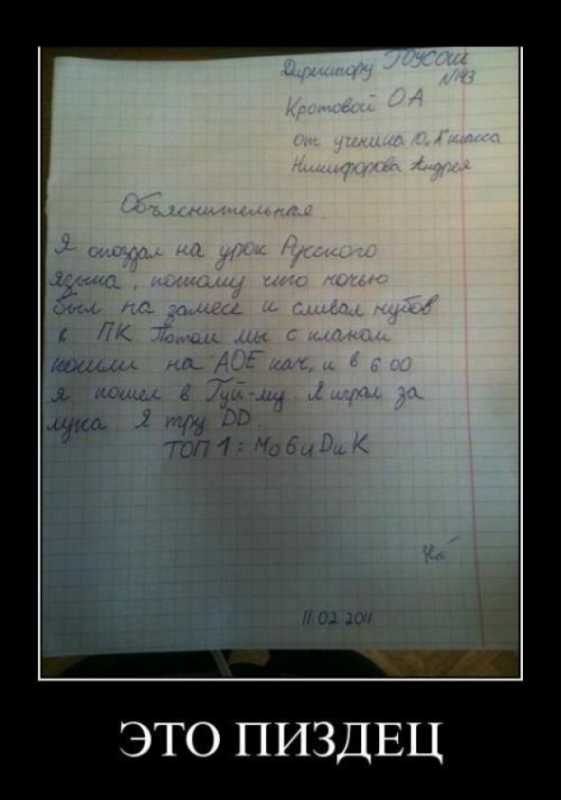 Директору ГОУСОШ
№143
Кротовой О.А
от ученика 10 "А" класса
Никифорова Андрея
Объяснительная.
Я опоздал на урок Русского
языка, потому что ночью
был на замесе и сливал нубов
в ПК Потом мы с кланом
пошли на АОЕ кач, и в 6 00
я пошел в Гуй-му. Я играл за
лука. Я тру DD.
ТОП 1: МоБиDиК
11.02.2011
ЭТО ПИЗДЕЦ